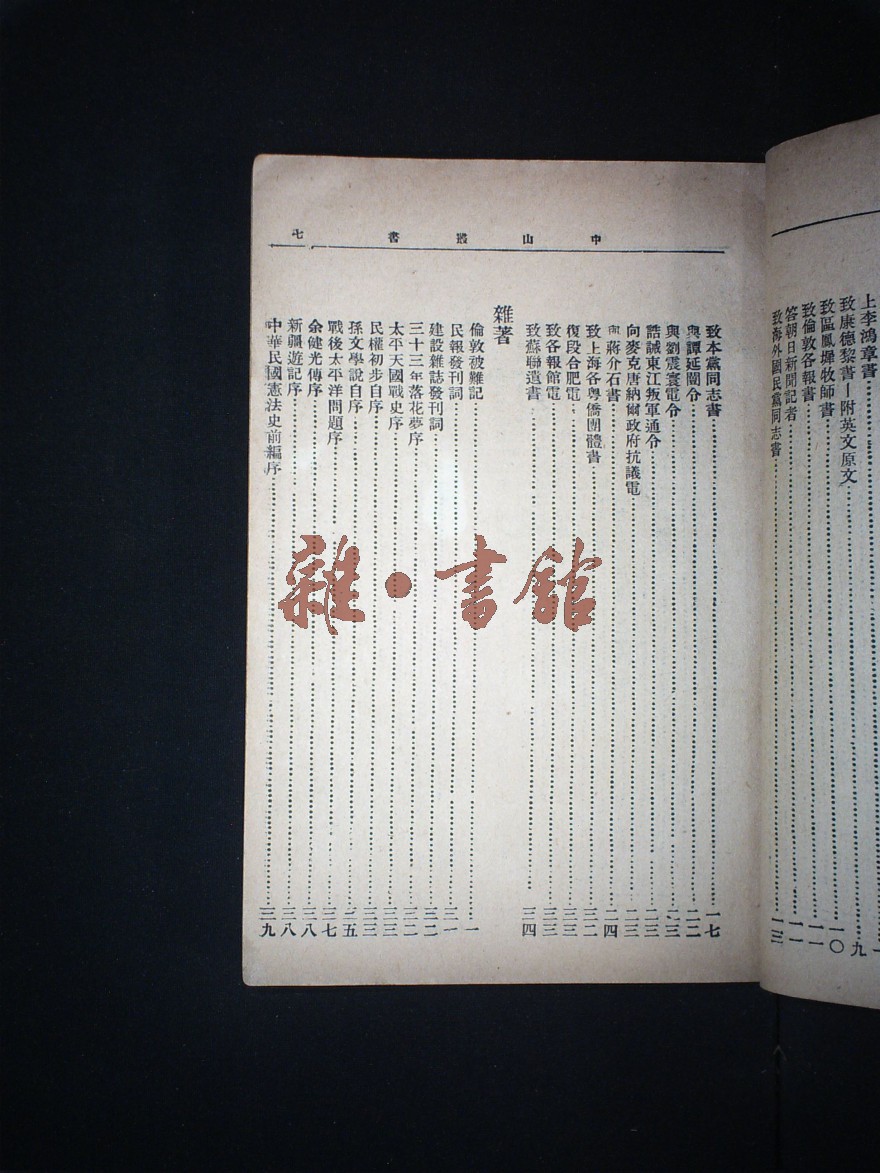 上李鴻章書……一
致康德黎書—附英文原文……九
致區鳳墀牧師書……一〇
致倫敦各報書……一一
答朝日新聞記者……一一
致海外國民黨同志書……一三
中山叢書 七
致本黨同志書……一七
與譚延闓令……二二
與劉震寰電令……二三
誥誡東江叛軍通令……二三
向麥克唐納爾政府抗議電……二三
與蔣介石書……二四
致上海各粵僑團體書……三二
復段合肥電……三三
致各報館電……三三
致蘇聯遺書……三四
雜著
倫敦被難記……一
民報發刊詞……三一
建設雜誌發刊詞……三二
三十三年落花夢序……三二
太平天國戰史序……三三
民權初步自序……三三
孫文學說自序……三五
戰後太平洋問題序……三七
余健光傳序……三八
新疆遊記序……三八
中華民國憲法史前編序……三九
雜·書館